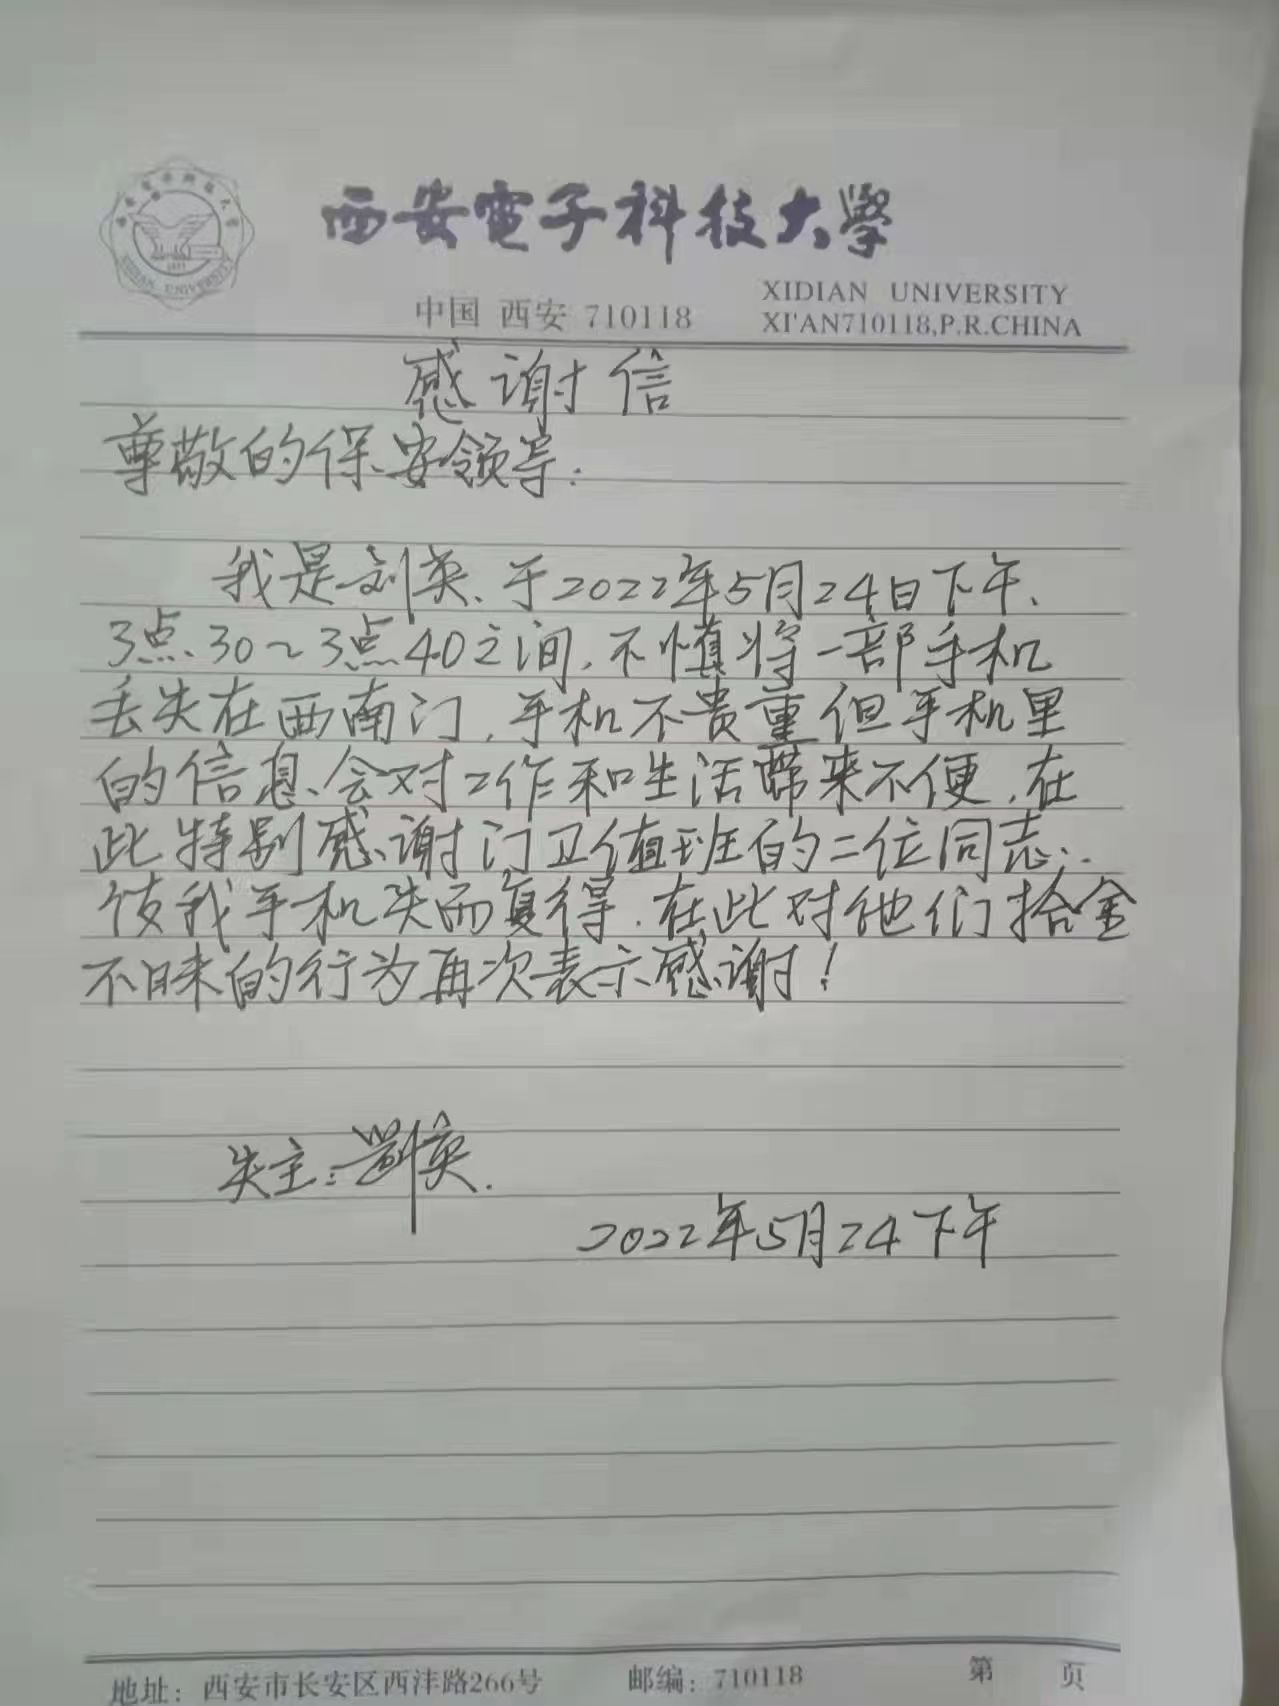 西安電子科技大學
XIDIAN UNIVERSITY
中国 西安 710118
XI'AN710118,P.R.CHINA
感谢信
尊敬的保安领导：
我是刘英、于2022年5月24日下午、
3点30～3点40之间，不慎将一部手机
丢失在西南门，手机不贵重但手机里
的信息、会对工作和生活带来不便，在
此特别感谢门卫值班的二位同志..
使我手机失而复得．在此对他们拾金
不昧的行为再次表示感谢！
失主：刘英．
2022年5月24下午
地址：西安市长安区西沣路266号 邮编：710118 第 页
西安电子科技大学
XIDIAN UNIVERSITY
1931